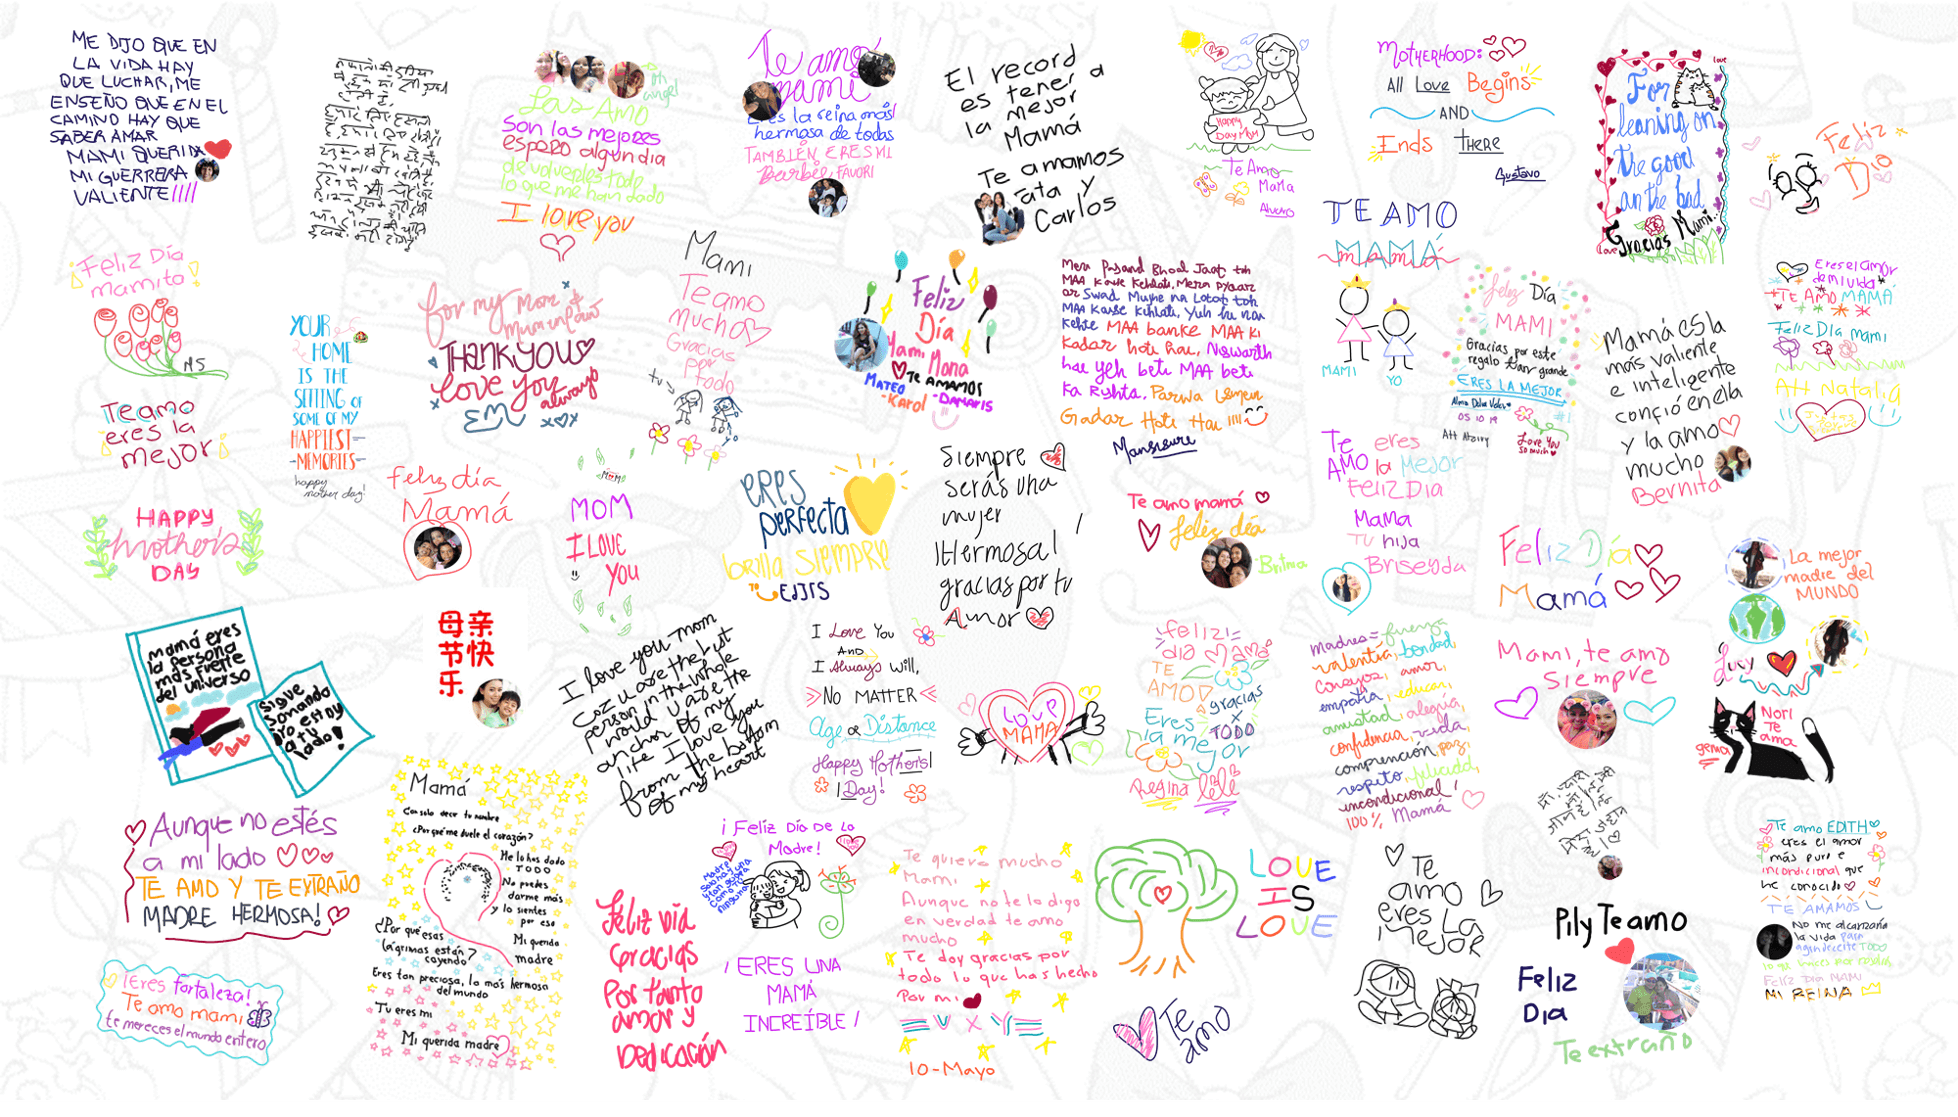 ME DIJO QUE EN
LA VIDA HAY
QUE LUCHAR, ME
ENSEÑO QUE EN EL
CAMINO HAY QUE
SABER AMAR
MAMI QUERIDA
MI GUERRERA
VALIENTE!!!!
Las AMO
Son las mejores
espero algun dia
devolverles todo
lo que me han dado
I love you
Te amo
mami
Eres la reina más
hermosa de todas
TAMBIÉN ERES MI
Barbie FAVORI
El record
es tener a
la mejor
Mamá
Te amamos
Tata y
Carlos
Happy
Day Mom
Te Amo
MaMa
Alvaro
MOTHERHOOD:
All Love Begins
AND
Ends THERE
Gustavo
love
For
leaning on
the good
an the bad
Gracias Mami..
love
Feliz
Día
TE AMO
MAMÁ
Feliz Día
mamita
NS
Te amo
eres la
mejor
YOUR
HOME
IS THE
SETTING OF
SOME OF MY
HAPPIEST
MEMORIES
happy
mother day!
For my mom &
mum in law
THANK YOU
love you
always
EMU
XOX
Mami
Te amo
mucho
Gracias
por
todo
tu
yo
Feliz
Día
Mami
Mona
TE AMAMOS
MATEO
-KAROL
-DAMARIS
Mera Pasand Bhool Jaaye toh
MAA Kaise Kehlati, Mera Pyaar
or Swad Mujhe na Lotaye toh
MAA Kaise Kehlati, Yeh hu nai
Kehte MAA banke MAA Ki
Kadar hoti hai, Niswarth
hai yeh beti MAA beti
Ka Rishta, Parwa
Gadar Hoti Hai !!!!
MAMI
YO
feliz Día
MAMI
Gracias por este
regalo tan grande
ERES LA MEJOR
05 10 19
#1
Love You
so much
Mamá es la
más valiente
e inteligente
confió en ella
y la amo
mucho
Bernita
Eres el amor
de mi vida
TE AMO MAMÁ
Feliz DIa mami
Att Natalia
HAPPY
mother's
DAY
feliz día
Mamá
MOM
MOM
I LOVE
YOU
ERES
perfecta
brilla siempre
EDITS
Siempre
serás una
mujer
¡Hermosa!
gracias por tu
Amor
Te amo mamá
feliz día
Britma
Te eres
AMO la Mejor
FELIZ DIA
Mama
TU hija
Briseyda
Feliz Día
Mamá
La mejor
madre del
MUNDO
Lucy
Mamá eres
la persona
más fuerte
del universo
Sigue
sonando
yo estoy
a tu
lado!
母亲
节快
乐
I love you mom
Coz u are the best
person in the whole
world U are the
anchor of my
life I love you
from the bottom
of my heart
I Love You
AND
I Always Will,
NO MATTER
Age or Distance
Happy Mother's
Day!
LOVE
MAMA
feliz
dia Mamá
TE
AMO
gracias
x
TODO
Eres
la mejor
Regina
madres= fuerza
valentía, bondad
corajez, amor,
empatía, educar,
amistad, alegría,
confidencia, vida,
comprención, paz,
respeto, felicidad,
incondicional!
100% Mamá
Mami, te amo
siempre
NORI
Te
ama
Aunque no estés
a mi lado
TE AMO Y TE EXTRAÑO
MADRE HERMOSA!
¡Eres fortaleza!
Te amo mami
te mereces el mundo entero
Mamá
Con solo decir tu nombre
¿Por qué me duele el corazón?
Me lo has dado
TODO
No puedes
darme más
y lo sientes
por eso
¿Por qué esas
lágrimas están
cayendo?
Mi querida
madre
Eres tan preciosa, lo más hermoso
del mundo
Tu eres mi
Mi querida madre
¡Feliz Dia De La
Madre!
Madre
Solo hay una
y tan guapa
Como Tú
ninguna
¡ERES UNA
MAMÁ
INCREÍBLE!
Feliz día
Gracias
Por tanto
amor y
Dedicación
Te quiero mucho
Mami
Aunque no te lo digo
en verdad te amo
mucho
Te doy gracias por
todo lo que has hecho
Por mi
10-Mayo
LOVE
IS
LOVE
Te
amo
Te
amo
eres La
Mejor
Pily Te amo
Feliz
Dia
Te extraño
Te amo EDITH
eres el amor
más puro e
incondicional que
he conocido
TE AMAMOS
No me alcanzaría
la vida para
agradecerte TODO
lo que haces por nosotros
Feliz Día MAMI
MI REINA